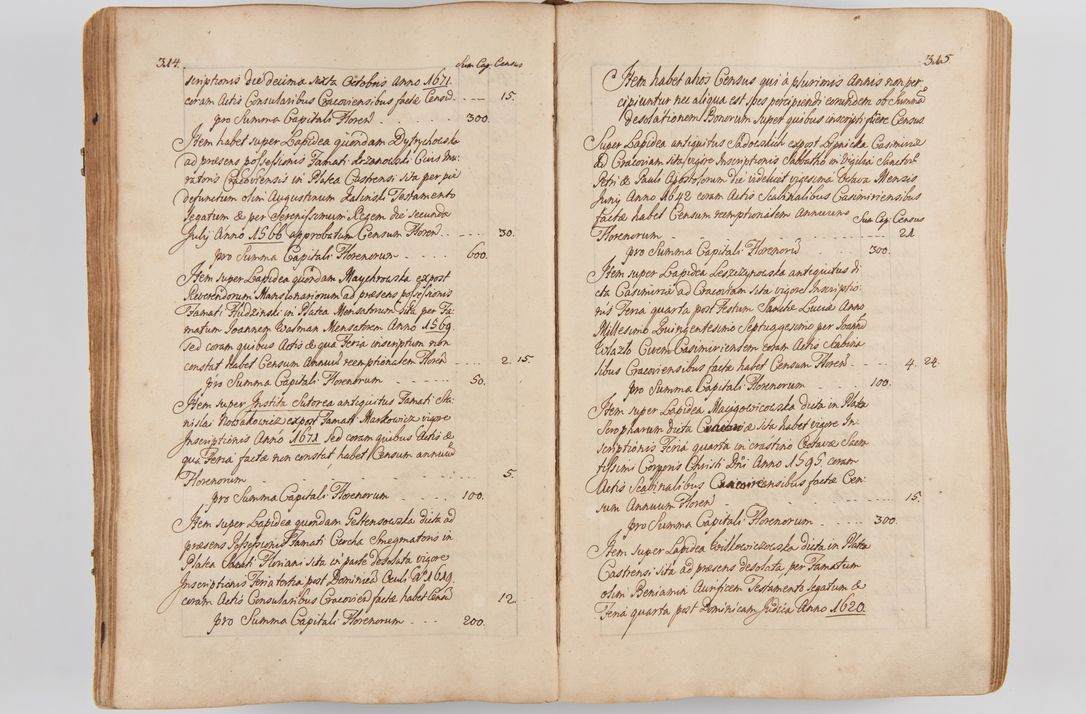 314.
Sum: Cap: Census
scriptionis die decima sexta Octobris Anno 1671.
coram Actis Consularibus Cracoviensibus factæ Censū. 15.
pro Summa Capitali Floren 300.
Item habet super Lapidea quondam
ad præsens possessionis Famati Civis
Cracoviensis in Platea Castrensi sita per piè
defunctum olim Augustinum Testamento
legatum & per Serenissimum Regem die secunda
Julij Anno 1566 approbatum Censum Floren 30.
pro Summa Capitali Florenorū 600.
Item super Lapidea quondam Maychrowska ex post
Reverendorum Mansionariorum ad præsens possessionis
Famati Rudzinski in Platea Mensatorum sita per Fa-
matum Joannem Walman Mensatorem Anno 1569
sed coram quibus Actis & qua Feria inscriptum non
constat habet Censum Annuū reemptionalem Floren 2. 15.
pro Summa Capitali Florenorum 50.
Item super Institâ Sutorea antiquitus Famati Sta-
nislai Nowakowicz ex post Famati Markowicz vigore
Inscriptionis Anno 1671 sed coram quibus Actis &
qua Feria factæ non constat, habet Censum annuū
Florenorum 5.
pro Summa Capitali Florenorum 100.
Item super Lapidea quondam dicta ad
præsens Possessionis Famati Cercha Smegmatoris in
Platea Sancti Floriani sita in parte desolata vigore
Inscriptionis Feria tertia post Dominicā Oculi A° 1619.
coram Actis Consularibus Cracovien factæ habet Censū 12.
pro Summa Capitali Florenorum 200.
315.
Item habet alios Census qui à plurimis Annis non per
cipiuntur nec aliqua est spes percipiendi eorundem ob summā
desolationem Bonorum super quibus inscripti sunt Census
Super Lapidea antiquitus Sadowskich ex post Lipnicka Casimiriæ
ad Cracoviam sita vigore Inscriptionis Sabbatho in Vigilia Sanctorū
Petri & Pauli Apostolorum die videlicet vigesima Octava Mensis
Junij Anno 1642 coram Actis Scabinalibus Casimiriensibus
factæ habet Censum reemptionalem Annuum
Sum: Cap: Census
Florenorum 21
pro Summa Capitali Florenorū 300.
Item super Lapidea Leszczynowska antiquitus di
cta Casimiriæ ad Cracoviam sita vigore Inscriptio-
nis Feria quarta post Festum Sanctæ Luciæ Anno
Millesimo Quingentesimo Septuagesimo per Joannē
Wlazlo Civem Casimiriensem coram Actis Scabina
libus Cracoviensibus factæ habet Censum Floren 4. 24.
pro Summa Capitali Florenorum 100.
Item super Lapidea dicta in Platea
dicta Cracoviæ sita habet vigore In-
scriptionis Feria quarta in crastino Octavæ Sacra-
tissimi Corporis Christi Dñi Anno 1595. coram
Actis Scabinalibus Cracoviensibus factæ Cen-
sum Annuum Floren 15.
pro Summa Capitali Florenorum 300.
Item super Lapidea Willowiczowska dicta in Platea
Castrensi sita ad præsens desolata per Famatum
olim Beniamin Aurificem Testamento legatum &
Feria quarta post Dominicam Judica Anno 1620.